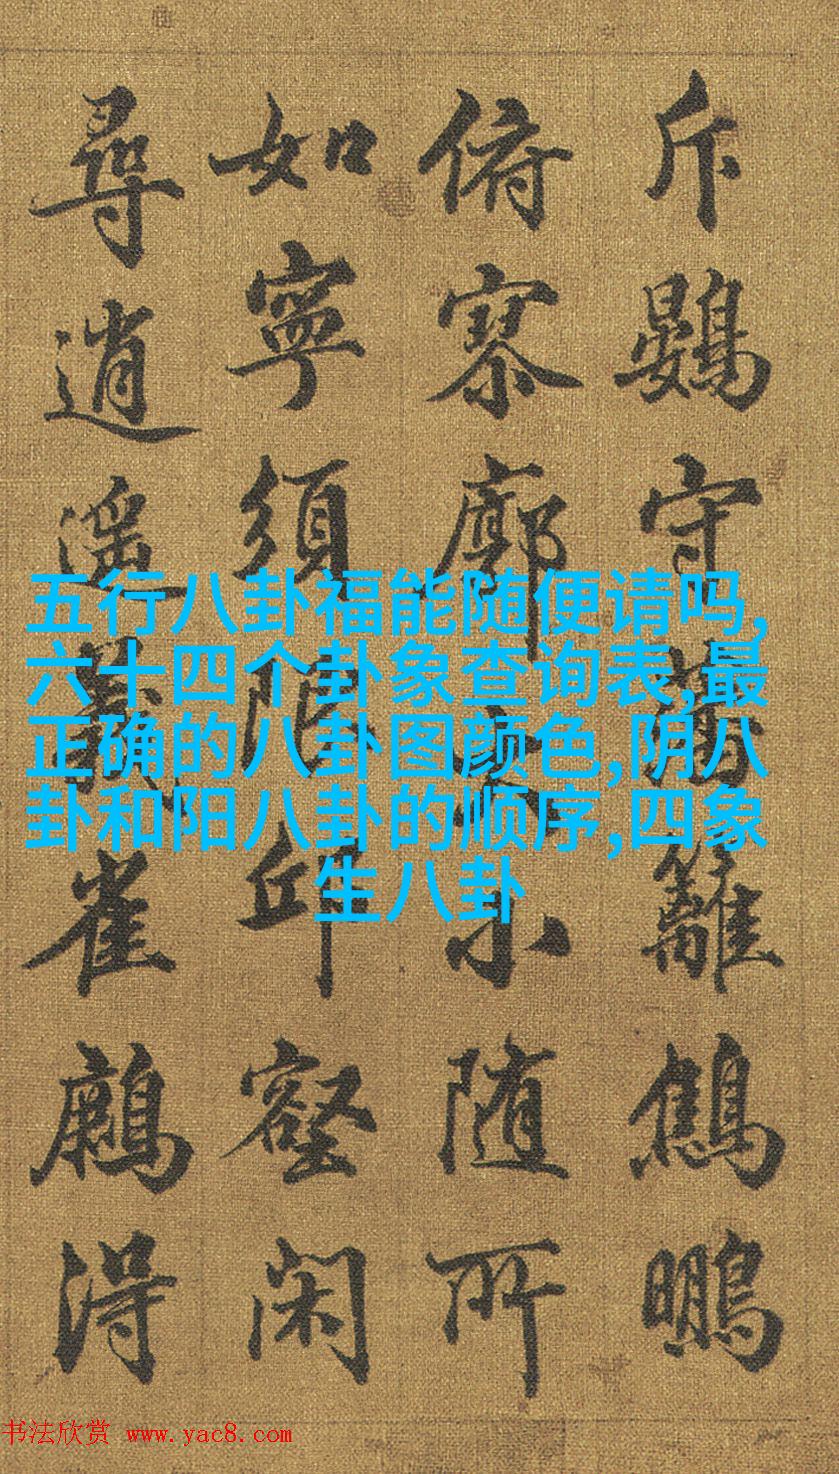 斥鷃守籬鷦鵬
俯寥廓大小随所
如寧須限邱壑闲
尋逍遥雀得
五行八卦福能随便请吗,
六十四个卦象查询表,最
正确的八卦图颜色,阴八
卦和阳八卦的顺序,四象
生八卦
书法欣赏 www.yac8.com